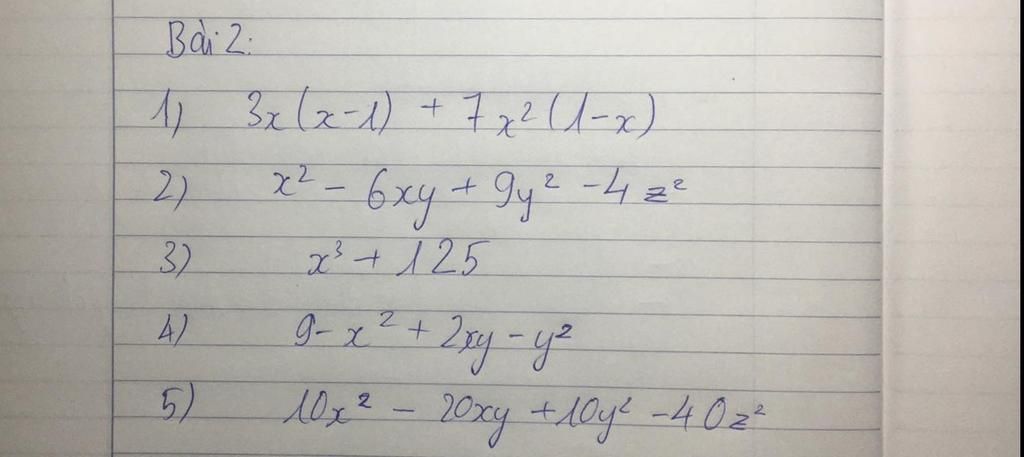 Bài 2:
1) 3x(x-1) + 7x²(1-x)
2) x² - 6xy + 9y² - 4z²
3) x³ + 125
4) 9 - x² + 2xy - y²
5) 10x² - 20xy + 10y² - 40z²